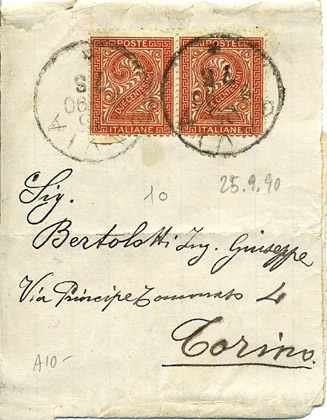 POSTE POSTE
2 2
DUE CENTESIMI DUE CENTESIMI
ITALIANE ITALIANE
10
25.9.90
Sig.
Bertolotti Ing. Giuseppe
Via Principe Tommaso 4
Torino
A10-